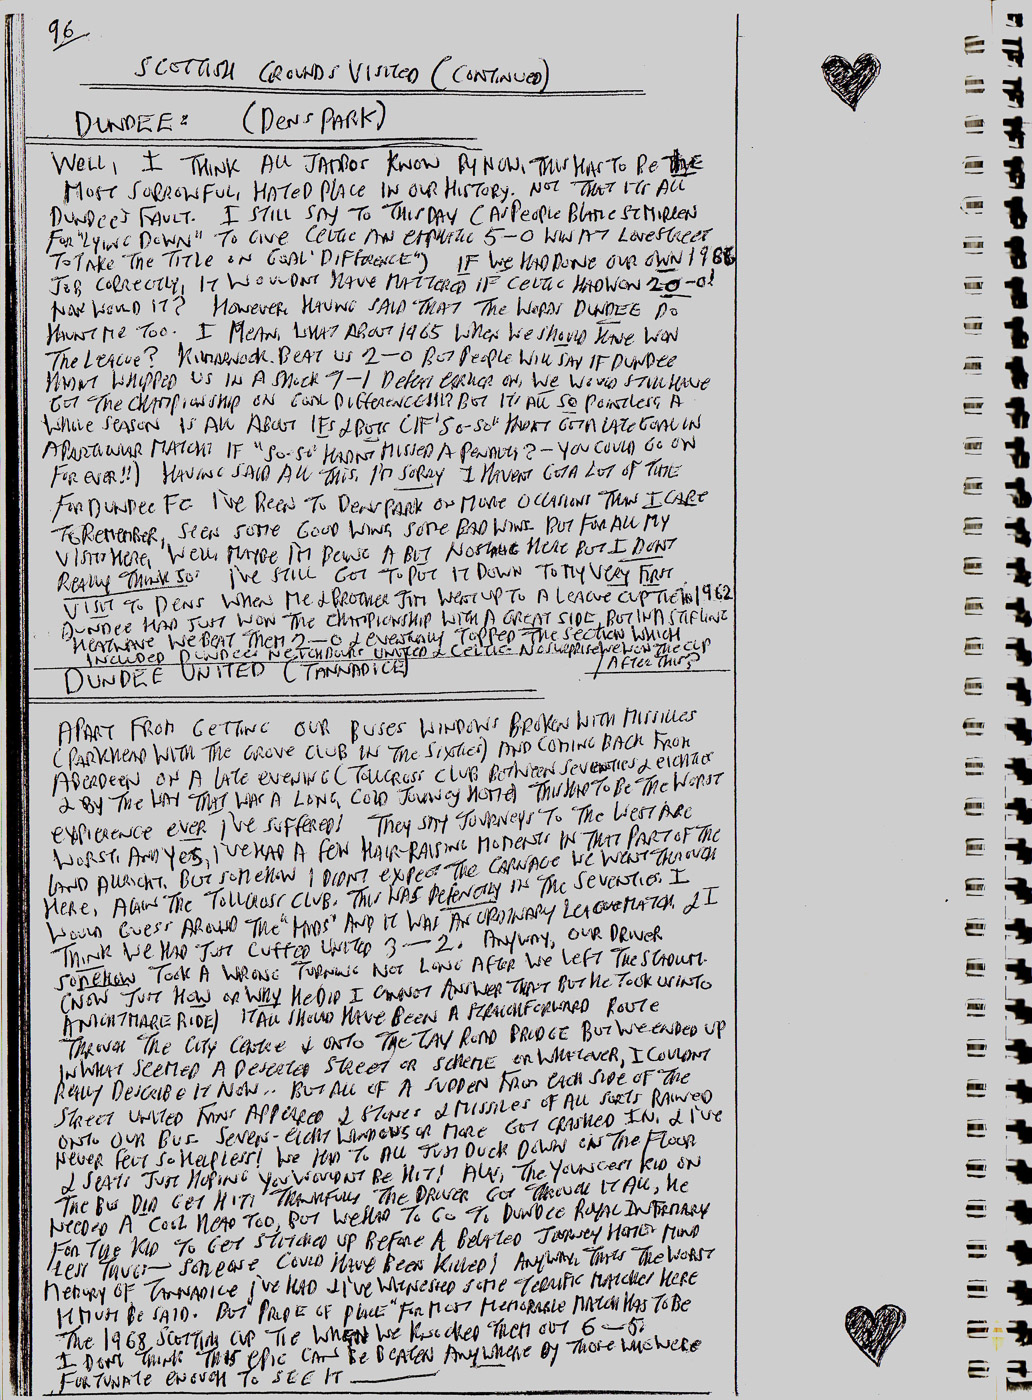 96
SCOTTISH GROUNDS VISITED (CONTINUED)
DUNDEE: (DENS PARK)
WELL, I THINK ALL JAMBOS KNOW BY NOW, THIS HAS TO BE THE
MOST SORROWFUL, HATED PLACE IN OUR HISTORY. NOT THAT IT'S ALL
DUNDEE'S FAULT. I STILL SAY TO THIS DAY (AS PEOPLE BLAME ST MIRREN
FOR "LYING DOWN" TO GIVE CELTIC AN EMPHATIC 5-0 WIN AT LOVE STREET
TO TAKE THE TITLE ON GOAL DIFFERENCE") IF WE HAD DONE OUR OWN 1986
JOB CORRECTLY, IT WOULDNT HAVE MATTERED IF CELTIC HAD WON 20-0!
NOW WOULD IT? HOWEVER HAVING SAID THAT THE WORDS DUNDEE DO
HAUNT ME TOO. I MEAN, WHAT ABOUT 1965 WHEN WE SHOULD HAVE WON
THE LEAGUE? KILMARNOCK BEAT US 2-0 BUT PEOPLE WILL SAY IF DUNDEE
HADNT WHIPPED US IN A SHOCK 7-1 DEFEAT EARLIER ON, WE WOULD STILL HAVE
GOT THE CHAMPIONSHIP ON GOAL DIFFERENCE!!!? BUT IT'S ALL SO POINTLESS A
WHOLE SEASON IS ALL ABOUT IFS & BUTS (IF "SO-SO" HADNT GOT A LATE GOAL IN
A PARTICULAR MATCH! IF "SO-SO" HADNT MISSED A PENALTY? - YOU COULD GO ON
FOR EVER!!) HAVING SAID ALL THIS, I'M SORRY I HAVENT GOT A LOT OF TIME
FOR DUNDEE FC I'VE BEEN TO DENS PARK ON MORE OCCASIONS THAN I CARE
TO REMEMBER, SEEN SOME GOOD WINS, SOME BAD WINS BUT FOR ALL MY
VISITS HERE, WELL, MAYBE I'M BEING A BIT HERE BUT I DONT
REALLY THINK SO. I'VE STILL GOT TO PUT IT DOWN TO MY VERY FIRST
VISIT TO DENS WHEN ME & BROTHER JIM WENT UP TO A LEAGUE CUP TIE IN 1962
DUNDEE HAD JUST WON THE CHAMPIONSHIP WITH A GREAT SIDE, BUT IN A STIFLING
HEATWAVE WE BEAT THEM 2-0 & EVENTUALLY TOPPED THE SECTION WHICH
INCLUDED DUNDEE'S NEIGHBOURS UNITED & CELTIC. NO SURPRISE WE WON THE CUP
AFTER THIS?
DUNDEE UNITED (TANNADICE)
APART FROM GETTING OUR BUSES WINDOWS BROKEN WITH MISSILES
(PARKHEAD WITH THE GROVE CLUB IN THE SIXTIES) AND COMING BACK FROM
ABERDEEN ON A LATE EVENING (TOLLCROSS CLUB BETWEEN SEVENTIES & EIGHTIES
& BY THE WAY THAT WAS A LONG, COLD JOURNEY HOME) THIS HAD TO BE THE WORST
EXPIERENCE EVER I'VE SUFFERED! THEY SAY JOURNEYS TO THE WEST ARE
WORST. AND YES, I'VE HAD A FEW HAIR-RAISING MOMENTS IN THAT PART OF THE
LAND ALLRIGHT. BUT SOMEHOW I DIDNT EXPECT THE CARNAGE WE WENT THROUGH
HERE, AGAIN THE TOLLCROSS CLUB. THIS WAS DEFENETLY IN THE SEVENTIES. I
WOULD GUESS AROUND THE "MIDS" AND IT WAS AN ORDINARY LEAGUE MATCH & I
THINK WE HAD JUST CUFFED UNITED 3-2. ANYWAY, OUR DRIVER
SOMEHOW TOOK A WRONG TURNING NOT LONG AFTER WE LEFT THE STADIUM.
(NOW JUST HOW OR WHY HE DID I CANNOT ANSWER THAT BUT HE TOOK US INTO
A NIGHTMARE RIDE) IT ALL SHOULD HAVE BEEN A STRAIGHTFORWARD ROUTE
THROUGH THE CITY CENTRE & ONTO THE TAY ROAD BRIDGE BUT WE ENDED UP
IN WHAT SEEMED A DESERTED STREET OR SCHEME OR WHATEVER, I COULDNT
REALLY DESCRIBE IT NOW.. BUT ALL OF A SUDDEN FROM EACH SIDE OF THE
STREET UNITED FANS APPEARED & STONES & MISSILES OF ALL SORTS RAINED
ONTO OUR BUS. SEVEN-EIGHT WINDOWS OR MORE GOT CRASHED IN, & I'VE
NEVER FELT SO HELPLESS! WE HAD TO ALL JUST DUCK DOWN ON THE FLOOR
& SEATS JUST HOPING YOU WOULDNT BE HIT! ALAS, THE YOUNGEST KID ON
THE BUS DID GET HIT! THANKFULLY THE DRIVER GOT THROUGH IT ALL, HE
NEEDED A COOL HEAD TOO, BUT WE HAD TO GO TO DUNDEE ROYAL INFIRMARY
FOR THE KID TO GET STITCHED UP BEFORE A BELATED JOURNEY HOME! MIND
LESS THUGS - SOMEONE COULD HAVE BEEN KILLED! ANYWAY, THATS THE WORST
MEMORY OF TANNADICE I'VE HAD & I'VE WITNESSED SOME TERRIFIC MATCHES HERE
IT MUST BE SAID. BUT "PRIDE OF PLACE" FOR MOST MEMORABLE MATCH HAS TO BE
THE 1968 SCOTTISH CUP TIE WHEN WE KNOCKED THEM OUT 6-5.
I DONT THINK THIS EPIC CAN BE BEATEN ANYWHERE BY THOSE WHO WERE
FORTUNATE ENOUGH TO SEE IT